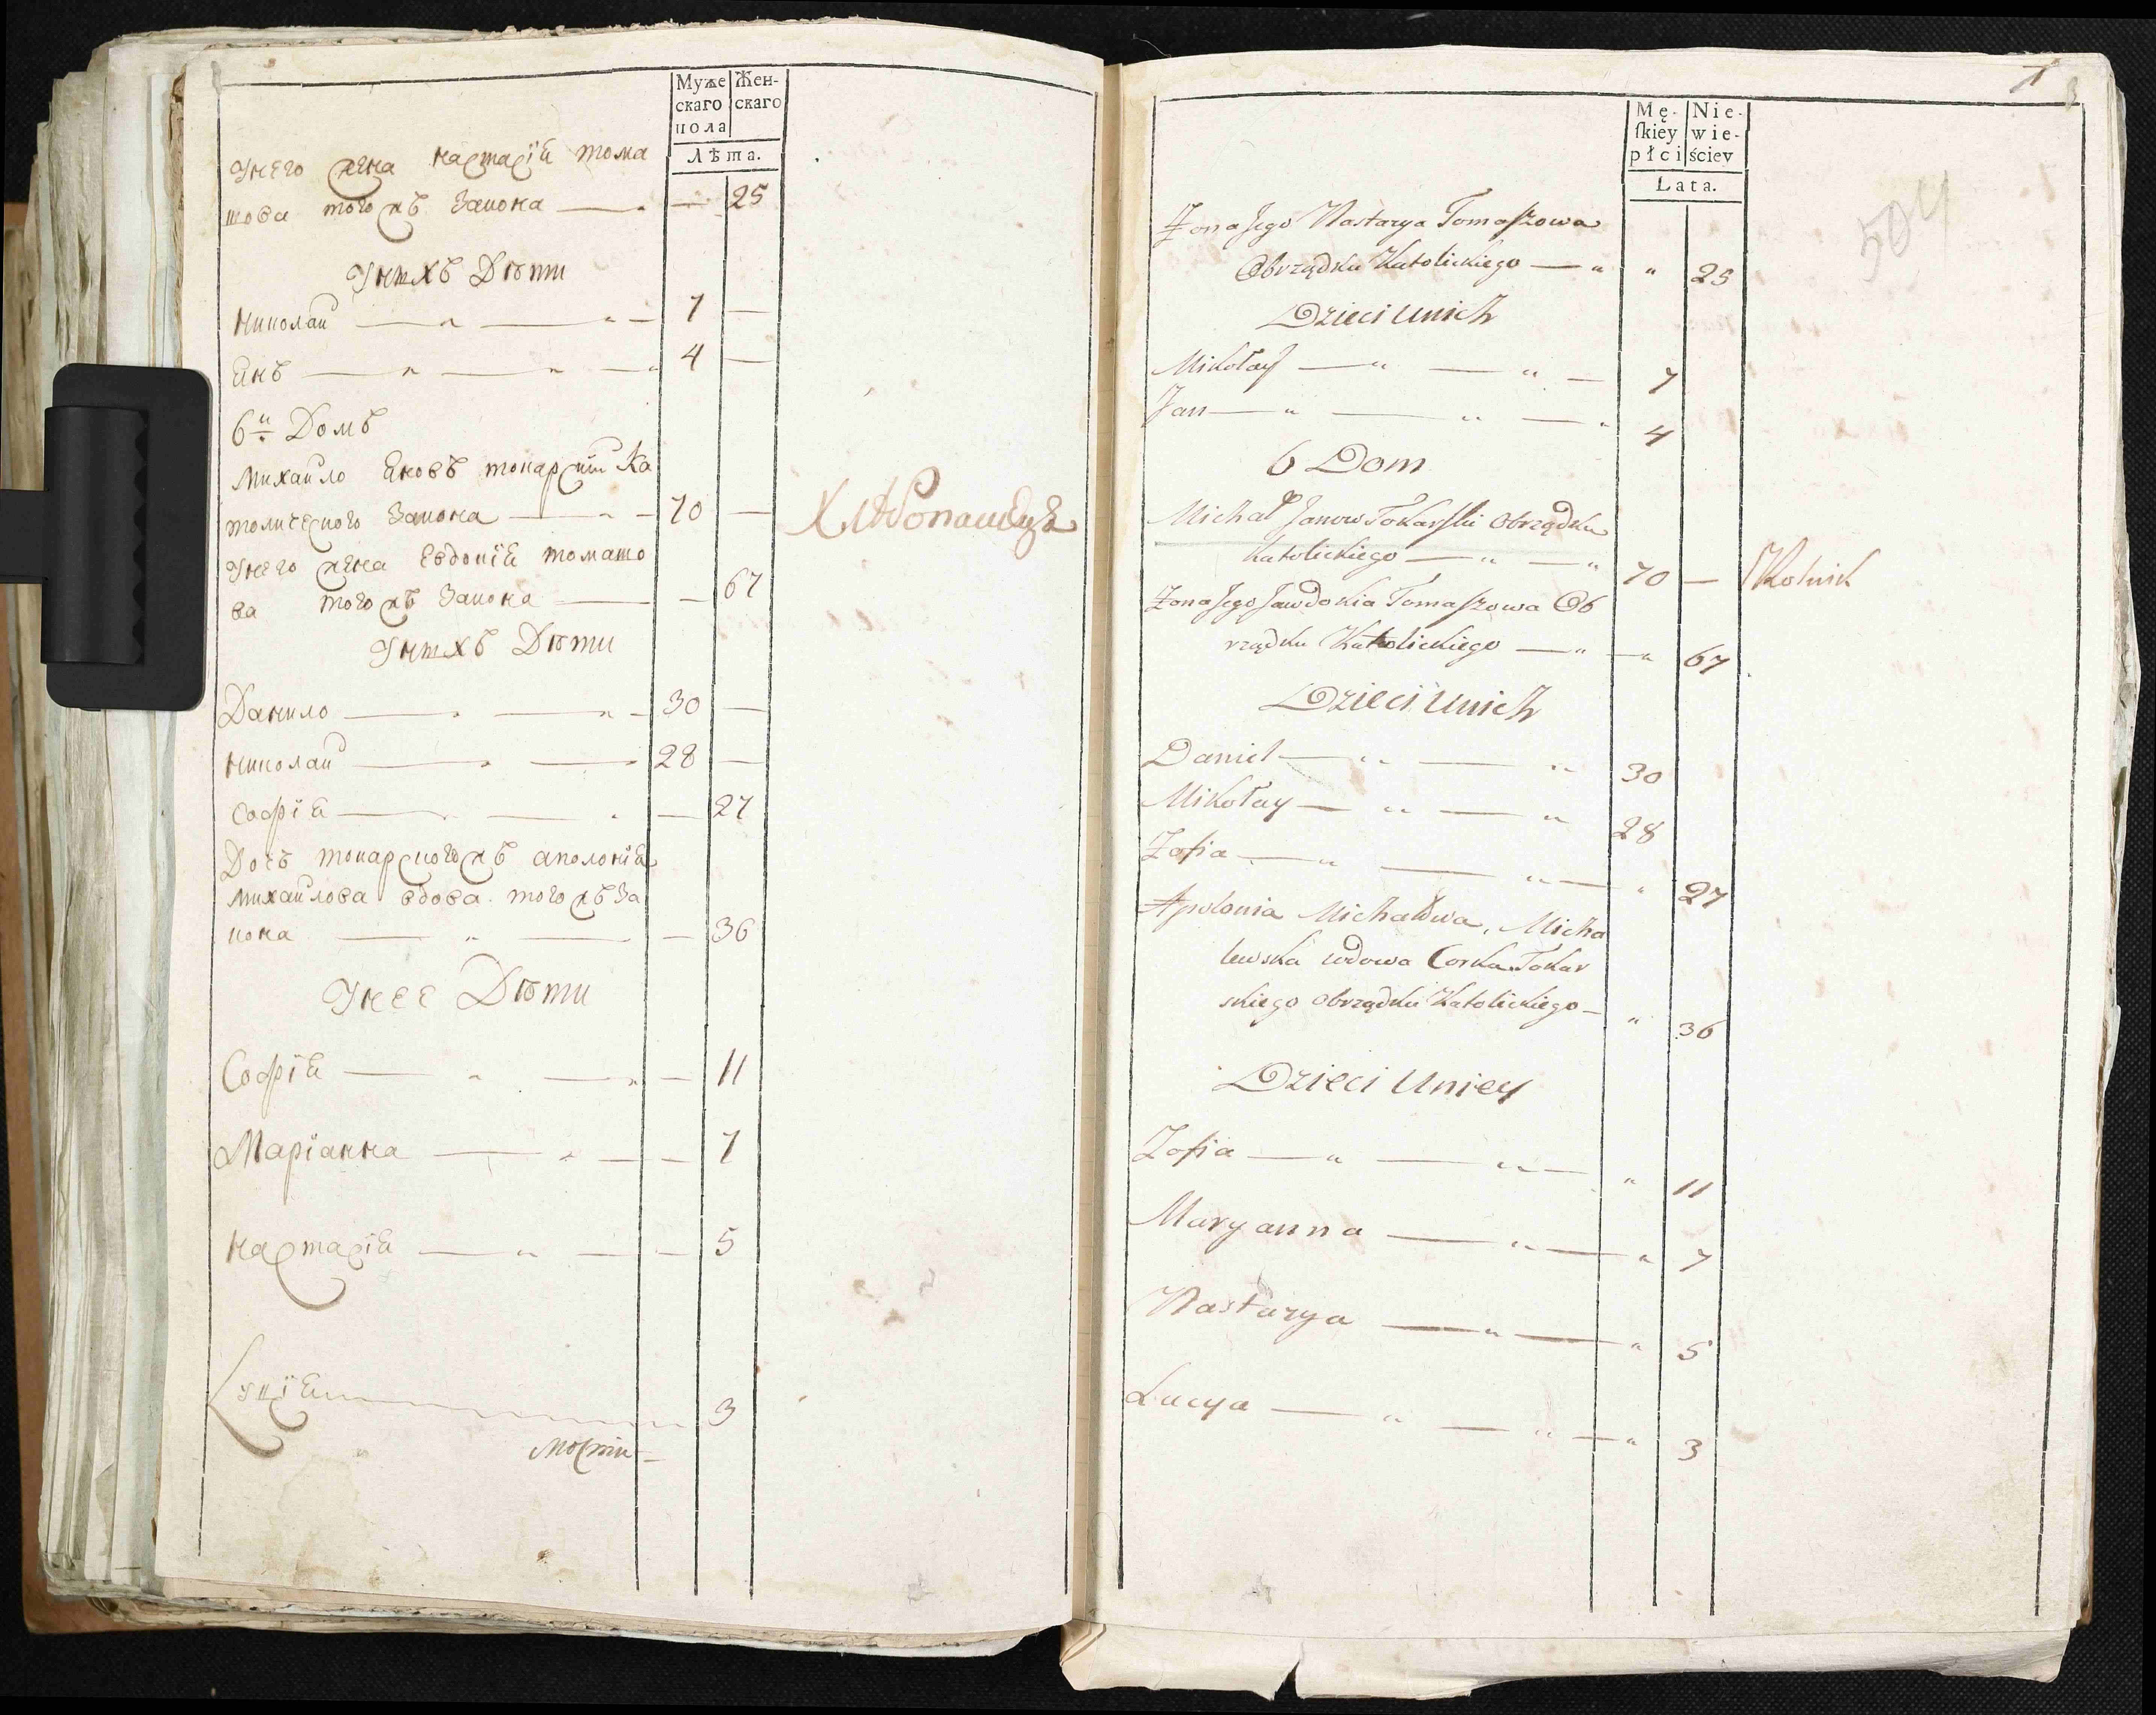 Муже Жен-
скаго скаго
пола
Лѣта.
Унего жена настасіѣ тома
шова тогожъ закона — — 25
Унихъ Дѣти
николай — " — " — 7 —
Янъ — " — " — 4 —
6й Домъ
михайло яновъ токарскій Ка
толического закона — — 70 — Хлѣбопашецъ
Унего жена Евдокіѣ томашо
ва тогожъ закона — — 67
Унихъ Дѣти
Данило — — 30 —
николай — — 28 —
софіѣ — — — 27
Дочъ токарскогожъ аполоніѣ
михайлова вдова тогожъ за
кона — " — — 36
Унее Дѣти
Софіѣ — " — " — 11
Маріанна — " — — 7
настасіѣ — " — — 5
Луціѣ 3
1
504
Mę- Nie-
ſkiey wie-
płci ściey
Lata.
Zona Jego Nastazya Tomaszowa
Obrządku Katolickiego — " " 25
Dzieci unich
Mikołay — " — " — 7
Jan — " — " — " 4
6 Dom
Michał Janow Tokarski obrządku
Katolickiego — " — " 70 — Rolnik
Zona Jego Jawdokia Tomaszowa Ob
rządku Katolickiego — " — " 67
Dzieci unich
Daniel — " — " 30
Mikołay — " — " 28
Zofia — " — " — " 27
Apolonia Michałowa, Micha
lewska wdowa Corka Tokar
skiego obrządku Katolickiego — " 36
Dzieci Uniey
Zofia — " — " — " 11
Maryanna — " — " 7
Nastazya — " — " 5
Lucya — " — " — " 3